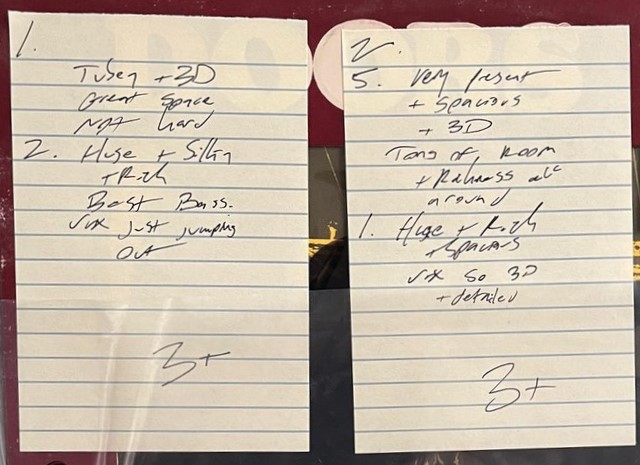 1.
Tubey + 3D
Great Space
Not hard
2. Huge + Silky
+ Rich
Best Bass.
Vox just jumping
out
3+
2.
5. Very present
+ Spacious
+ 3D
Tons of Room
+ Richness all
around
1. Huge + Rich
+ Spacious
Vox so 3D
+ detailed
3+